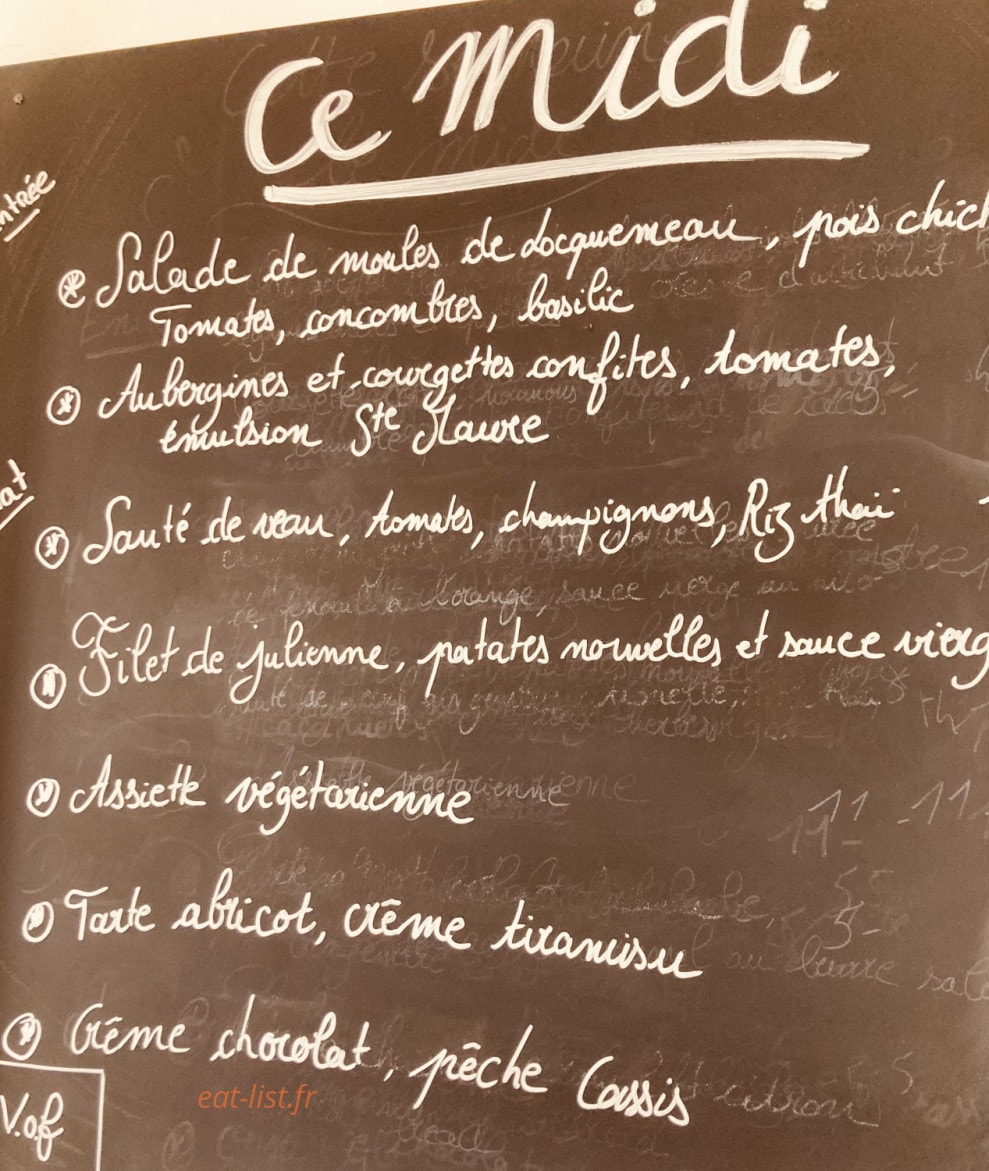 Ce Midi
ntrée
Salade de moules de Locquemeau, pois chich
Tomates, concombres, basilic
Aubergines et courgettes confites, tomates,
émulsion Ste Maure
at
Sauté de veau, tomates, champignons, Riz thaï
Filet de julienne, patates nouvelles et sauce vierg
Assiette végétarienne
Tarte abricot, crème tiramisu
Crème chocolat, pêche Cassis
eat-list.fr
V.o.f